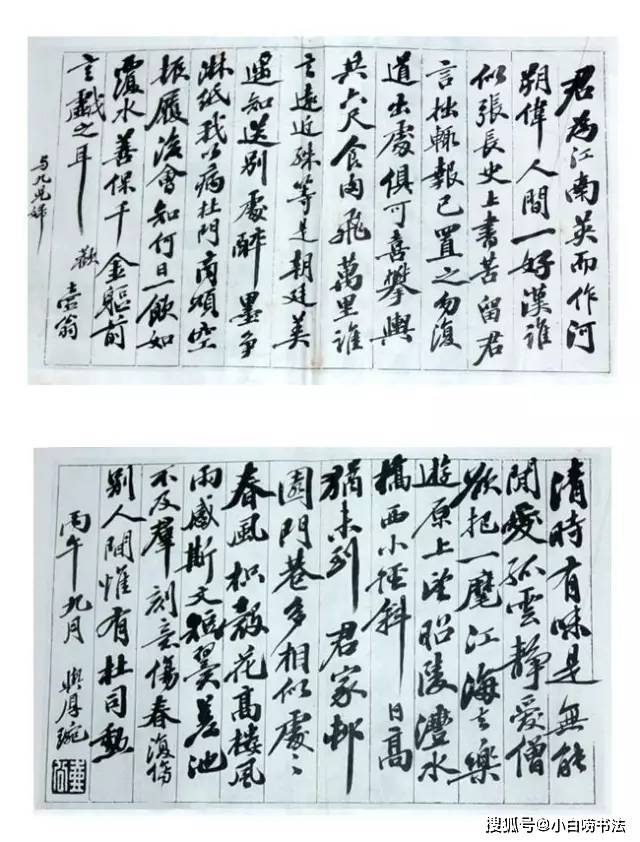 君為江南英而作河
朔偉人間一好漢誰
似張長史上書苦留君
言拙輒報已置之勿復
道出處俱可喜攀輿
共六尺食肉飛萬里誰
言遠近殊等是朝廷美
遙知送別處醉墨爭
淋紙我以病杜門商頌空
振履後會知何日一飲如
覆水善保千金軀前
言戲之耳
壺翁
清時有味是無能
閒愛孤雲靜愛僧
欲把一麾江海去樂
遊原上望昭陵灃水
橋西小徑斜日高
猶未到君家邨
園門巷多相似處々
春風枳殼花高樓風
雨感斯文短翼差池
不及羣刻意傷春復傷
別人間惟有杜司勳
丙午九月
搜狐号@小白唠书法